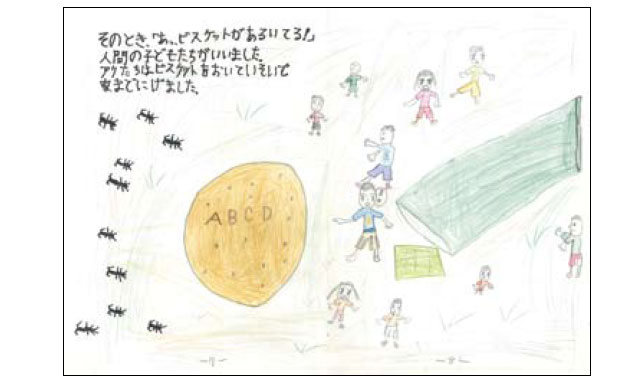 そのとき、「あっ、ビスケットがあるいてる！」
人間の子どもたちがいいました。
アリたちはビスケットをおいていそいで
家までにげました。
ABCD